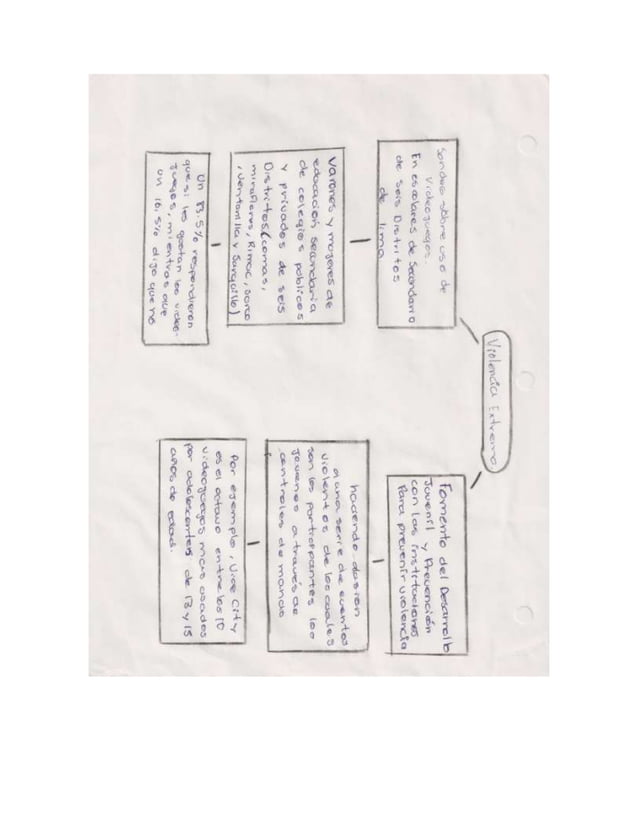 Violencia Extrema
Sondeo sobre uso de
Videojuegos.
En escolares de Secundaria
de seis Distritos
de lima
Varones y mujeres de
educación secundaria
de colegios publicos
y privados de seis
Distritos (comas,
miraflores, Rimac, surco
, ventanilla y Surquillo)
Un 83.5% respondieron
que si les gustan los video-
juegos, mientras que
un 16,5% dijo que no
Fomento del Desarrollo
Juvenil y Prevención
con las instituciones
Para prevenir violencia
haciendo alusion
a una serie de eventos
violentos de los cuales
son los participantes los
jovenes a traves de
controles de mando
Por ejemplo, Vice City
es el octavo entre los 10
videojuegos mas usados
por adolescentes de 13 y 15
años de edad.